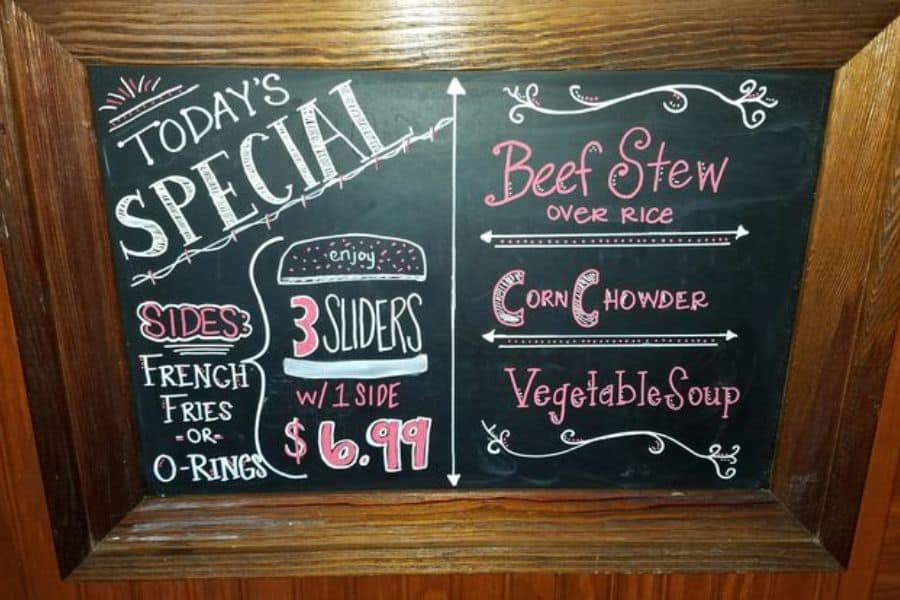 TODAY'S
SPECIAL
enjoy
3 SLIDERS
W/ 1 SIDE
$6.99
SIDES:
FRENCH
FRIES
-OR-
O-RINGS
Beef Stew
OVER RICE
CORN CHOWDER
Vegetable Soup